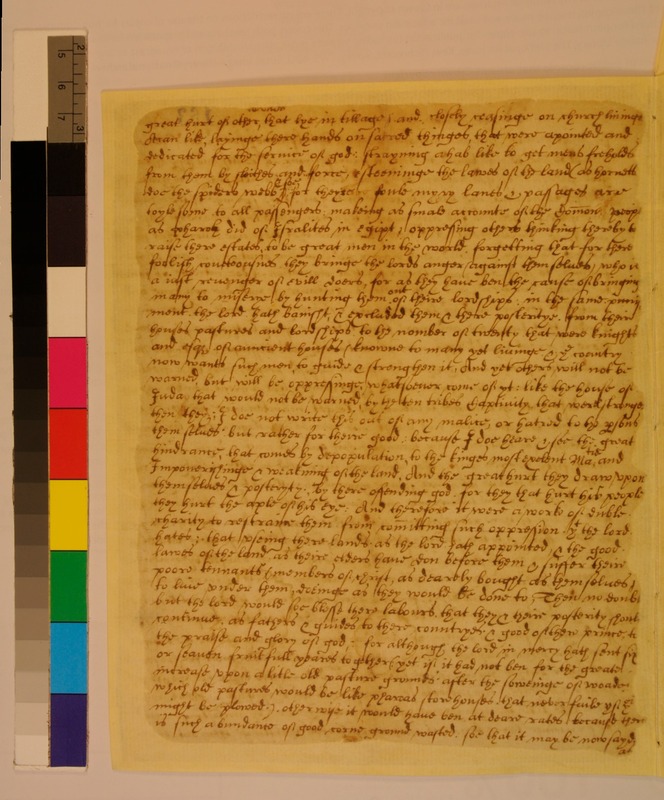 great hurt of other, that lye in tillage; and closely ceasinge on church livings
Acan like, layinge there hands on sacred thinges that were apointed and
dedicated for the service of god: strayning ahab like to get mens freholds
from them by and force, esteeminge the lawes of the land as hornetts
doe the spiders webb for theyre foule myry lanes & passages are
toylesome to all passengers, making as smale accounte of the Comon people
as pharaoh did of Israelites in egipt; oppressing others thinking thereby to
raise there estates to be great men in the world, forgetting that for there
foolish coveteousnes they bringe the lords anger against them selves, who is
a iust revenger of evill doers, for as they have ben the cause of bringing
many to miserie by hunting them out of theire lordships; in the same punish
ment, the lord hath banisht & excluded them & there posteritye from there
houses pastures and lordshipps to the nomber of twenty that were knights
and esqrs of auncient houses knowne to many yet livinge & the country
now wants such men to guide & strengthen it. And yet others will not be
warned, but will be oppressinge, whatsoever come of yt: like the house of
Iuda, that would not be warned by the ten tribes Captivity that were stronger
then they; I doe not write this out of any malice, or hatred to the psons
them selves: but rather for there good: because I doe heare & see the great
hindrance, that comes by depopulation to the kinges most exelent Matie, and
Impoverishinge & weakning of the land. And the great hurt they draw upon
themselves & posterity, by there offending god: for they that hurt his people
they hurt the aple of his eye. And therefore it were a work of duble
charity to restraine them from comitting such oppression yt the lord
hates; that useing there lands as the lord hath appointed & the good
lawes of the land, as theire elders have don before them & suffer their
poore tennants (members of christ, as dearely bought as themselves)
to live under them; doeinge as they would be done to Then no doubt
but the lord would soe bless there labours, that they & theire posterity shoul
continue, as fathers & guides to there countrey & good of there prince, to
the praise and glory of god: for although the lord in mercy hath sent six
or seaven fruitfull yeares together, yet if it had not ben for the greate
increase upon a litle old pasture grounds after the soweinge of woade
which old pastures would be like pharoas storehouses that never faile yf
might be plowed; otherwyse it would have ben at deare rates because there
is such abundance of good corne ground wasted. soe that it may be now sayd
at